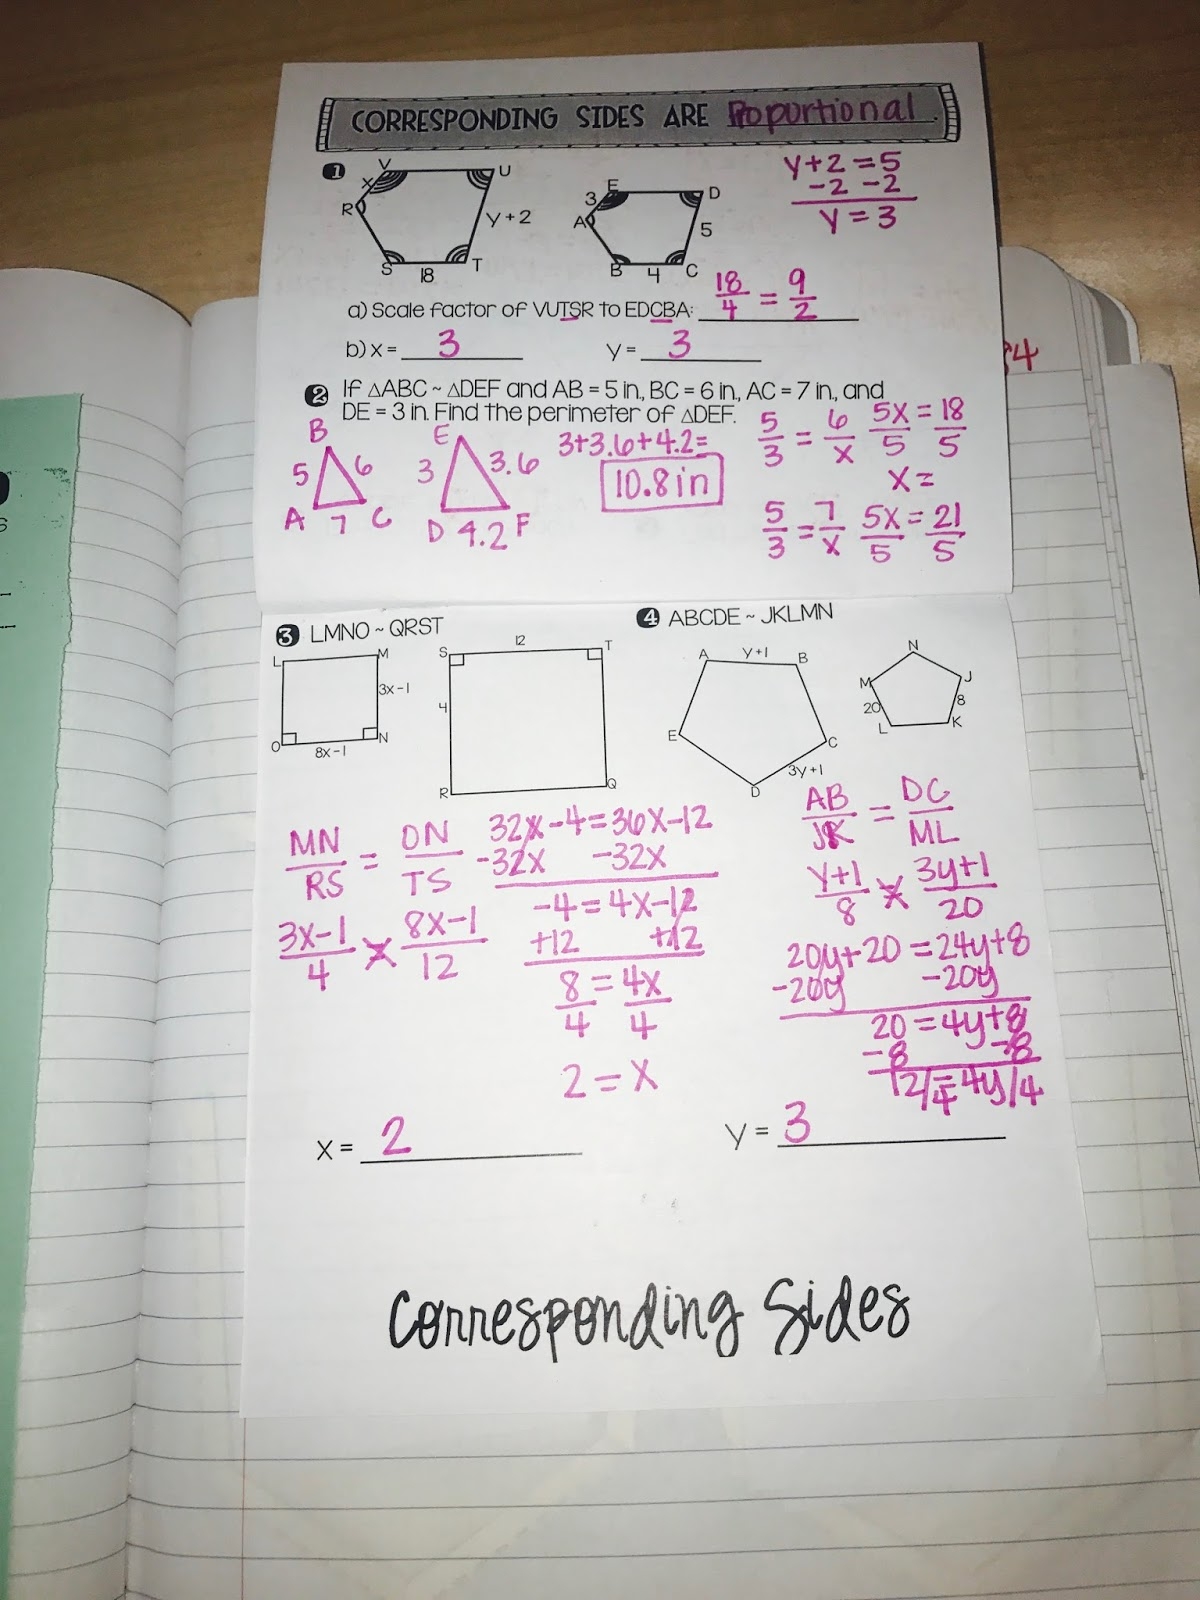 CORRESPONDING SIDES ARE Proportional.
1
V
U
X
R
y + 2
S
18
T
E
D
3
A
5
B
4
C
y+2=5
-2 -2
y = 3
a) Scale factor of VUTSR to EDCBA: 18/4 = 9/2
b) x = 3 y = 3
2 If △ABC ~ △DEF and AB = 5 in., BC = 6 in., AC = 7 in., and
DE = 3 in. Find the perimeter of △DEF.
B
5
6
A 7 C
E
3
3.6
D 4.2 F
3+3.6+4.2=
10.8 in
5/3 = 6/x 5x/5 = 18/5
x =
5/3 = 7/x 5x/5 = 21/5
3 LMNO ~ QRST
L
M
3x-1
O
N
8x-1
S
12
T
4
R
Q
MN/RS = ON/TS
3x-1/4 = 8x-1/12
32x-4=36x-12
-32x -32x
-4=4x-12
+12 +12
8/4 = 4x/4
2 = x
x = 2
4 ABCDE ~ JKLMN
A
y+1
B
E
C
3y+1
D
N
M
J
20
8
L
K
AB/JK = DC/ML
y+1/8 = 3y+1/20
20y+20=24y+8
-20y -20y
20=4y+8
-8 -8
12/4=4y/4
y = 3
Corresponding Sides